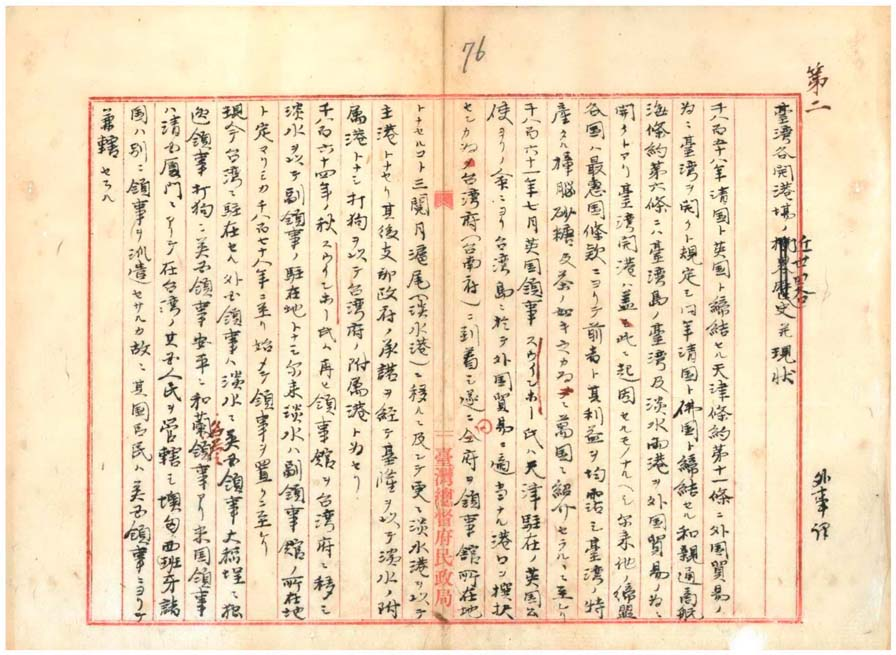 76
第二
外事課
臺湾各開港場ノ近世畧史並現状
千八百五十八年清国ト英国ト締結セル天津條約第十一條ニ外国貿易ノ
為ニ臺湾ヲ開クト規定シ同年清国ト佛国ト締結セル和親通商航
海條約第六條ニハ臺湾島ノ臺湾及淡水両港ヲ外国貿易ノ為ニ
開クトアリ臺湾開港ハ蓋シ此ニ起因セルモノナルヘシ尓来他ノ締盟
各国ハ最恵国條欵ニヨリテ前者ト其利益ヲ均霑シ臺湾ノ特
産タル樟脳砂糖及茶ノ如キ之カ為ニ萬国ニ紹介セラルヽニ至レリ
千八百六十一年七月英国領事スウィンホー氏ハ天津駐在ノ英国公
使ヨリノ命ニヨリ台湾島ニ於テ外国貿易ニ適当ナル港口ヲ撰択
センカ為メ台湾府(台南府)ニ到着シ遂ニ仝府ヲ領事館所在地
トナセルコト三閲月滬尾(淡水港)ニ移ルニ及ンテ更ニ淡水港ヲ以テ
主港トナセリ其後支那政府ノ承諾ヲ経テ基隆ヲ以テ淡水ノ附
属港トナシ打狗ヲ以テ台湾府ノ附属港ト為セリ
千八百六十四年ノ秋スウィンホー氏ハ再ヒ領事館ヲ台湾府ニ移シ
淡水ヲ以テ副領事ノ駐在地トナシ尓来淡水ハ副領事館ノ所在地
ト定マリシカ千八百七十八年ニ至リ始メテ領事ヲ置クニ至レリ
現今台湾ニ駐在セル外国領事ハ淡水ニ英国領事大稲埕ニ独
逸領事打狗ニ英国領事安平ニ和蘭領事アリ米国領事
ハ清国厦門ニアリテ在台湾ノ其国人民ヲ管轄シ墺匈西班牙諸
国ハ別ニ領事ヲ派遣セサルカ故ニ其国臣民ハ英国領事ニヨリテ
兼轄セラル
臺灣總督府民政局